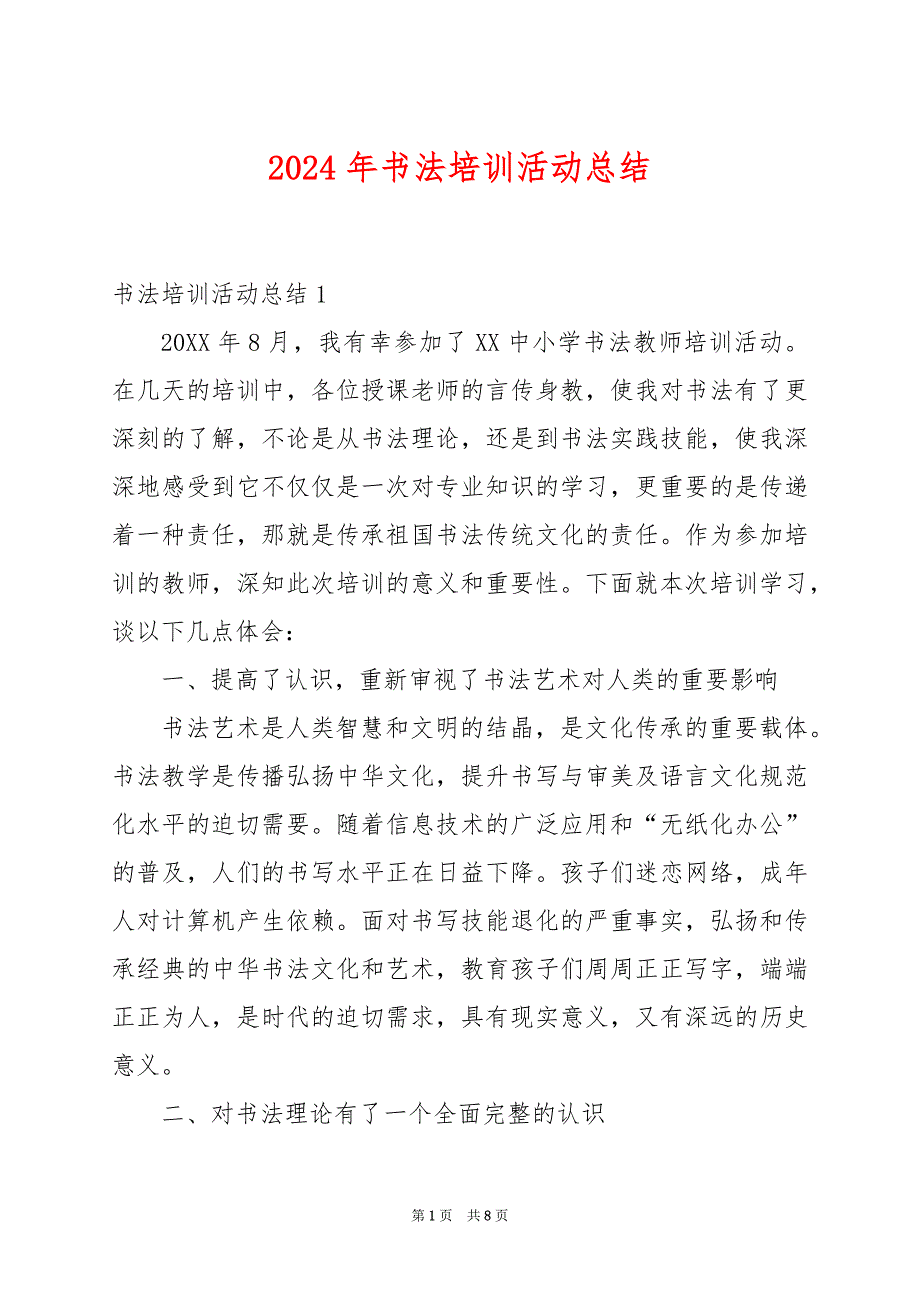 2024 年书法培训活动总结
书法培训活动总结 1
20XX 年 8 月，我有幸参加了 XX 中小学书法教师培训活动。
在几天的培训中，各位授课老师的言传身教，使我对书法有了更
深刻的了解，不论是从书法理论，还是到书法实践技能，使我深
深地感受到它不仅仅是一次对专业知识的学习，更重要的是传递
着一种责任，那就是传承祖国书法传统文化的责任。作为参加培
训的教师，深知此次培训的意义和重要性。下面就本次培训学习，
谈以下几点体会：
一、提高了认识，重新审视了书法艺术对人类的重要影响
书法艺术是人类智慧和文明的结晶，是文化传承的重要载体。
书法教学是传播弘扬中华文化，提升书写与审美及语言文化规范
化水平的迫切需要。随着信息技术的广泛应用和“无纸化办公”
的普及，人们的书写水平正在日益下降。孩子们迷恋网络，成年
人对计算机产生依赖。面对书写技能退化的严重事实，弘扬和传
承经典的中华书法文化和艺术，教育孩子们周周正正写字，端端
正正为人，是时代的迫切需求，具有现实意义，又有深远的历史
意义。
二、对书法理论有了一个全面完整的认识
第 1 页 共 8 页